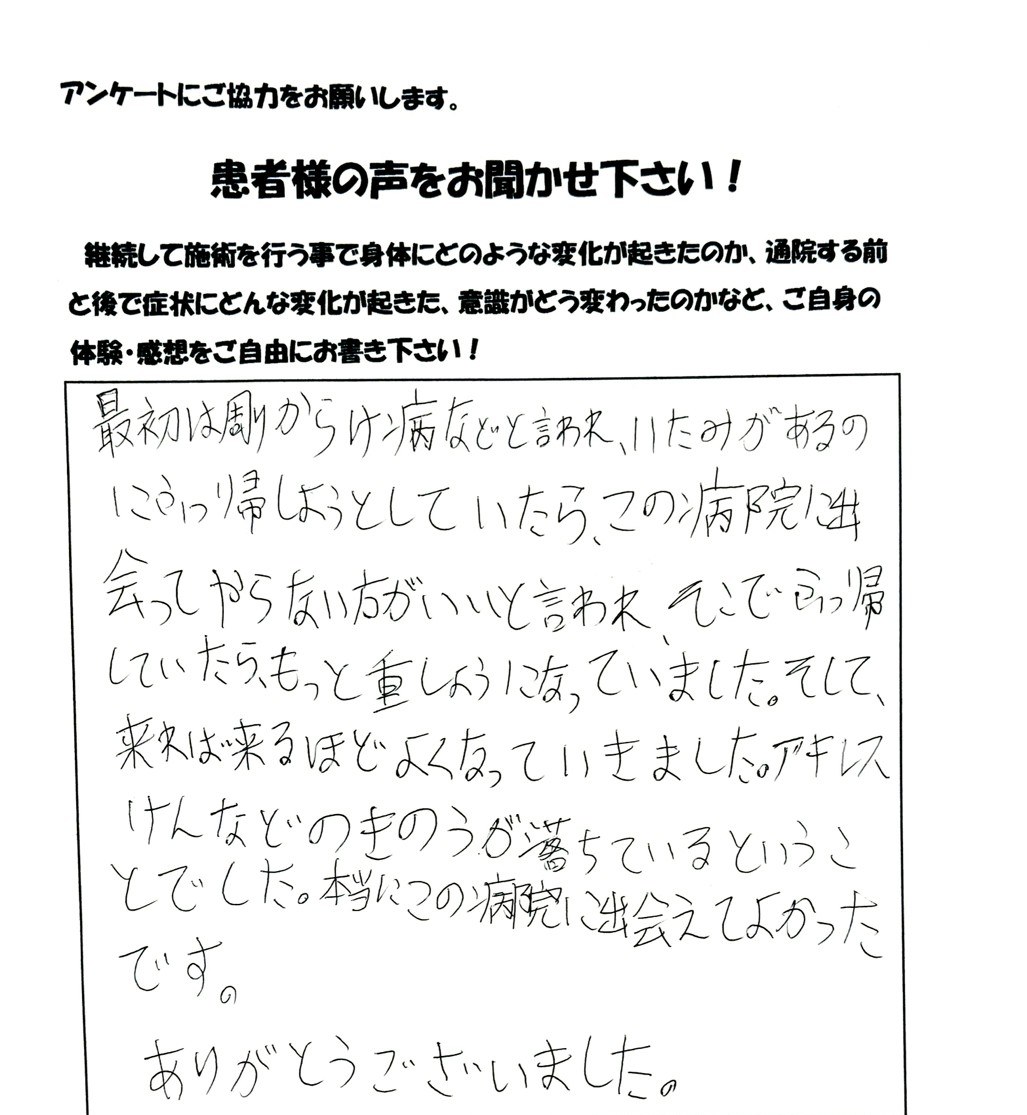 アンケートにご協力をお願いします。
患者様の声をお聞かせ下さい！
継続して施術を行う事で身体にどのような変化が起きたのか、通院する前
と後で症状にどんな変化が起きた、意識がどう変わったのかなど、ご自身の
体験・感想をご自由にお書き下さい！
最初は周りからけ病などと言われ、いたみがあるの
にふっ帰しようとしていたら、この病院に出
会ってやらない方がいいと言われ、そこでふっ帰
していたら、もっと重しょうになっていました。そして、
来れば来るほどよくなっていきました。アキレス
けんなどのきのうが落ちているというこ
とでした。本当にこの病院に出会えてよかった
です。
ありがとうございました。